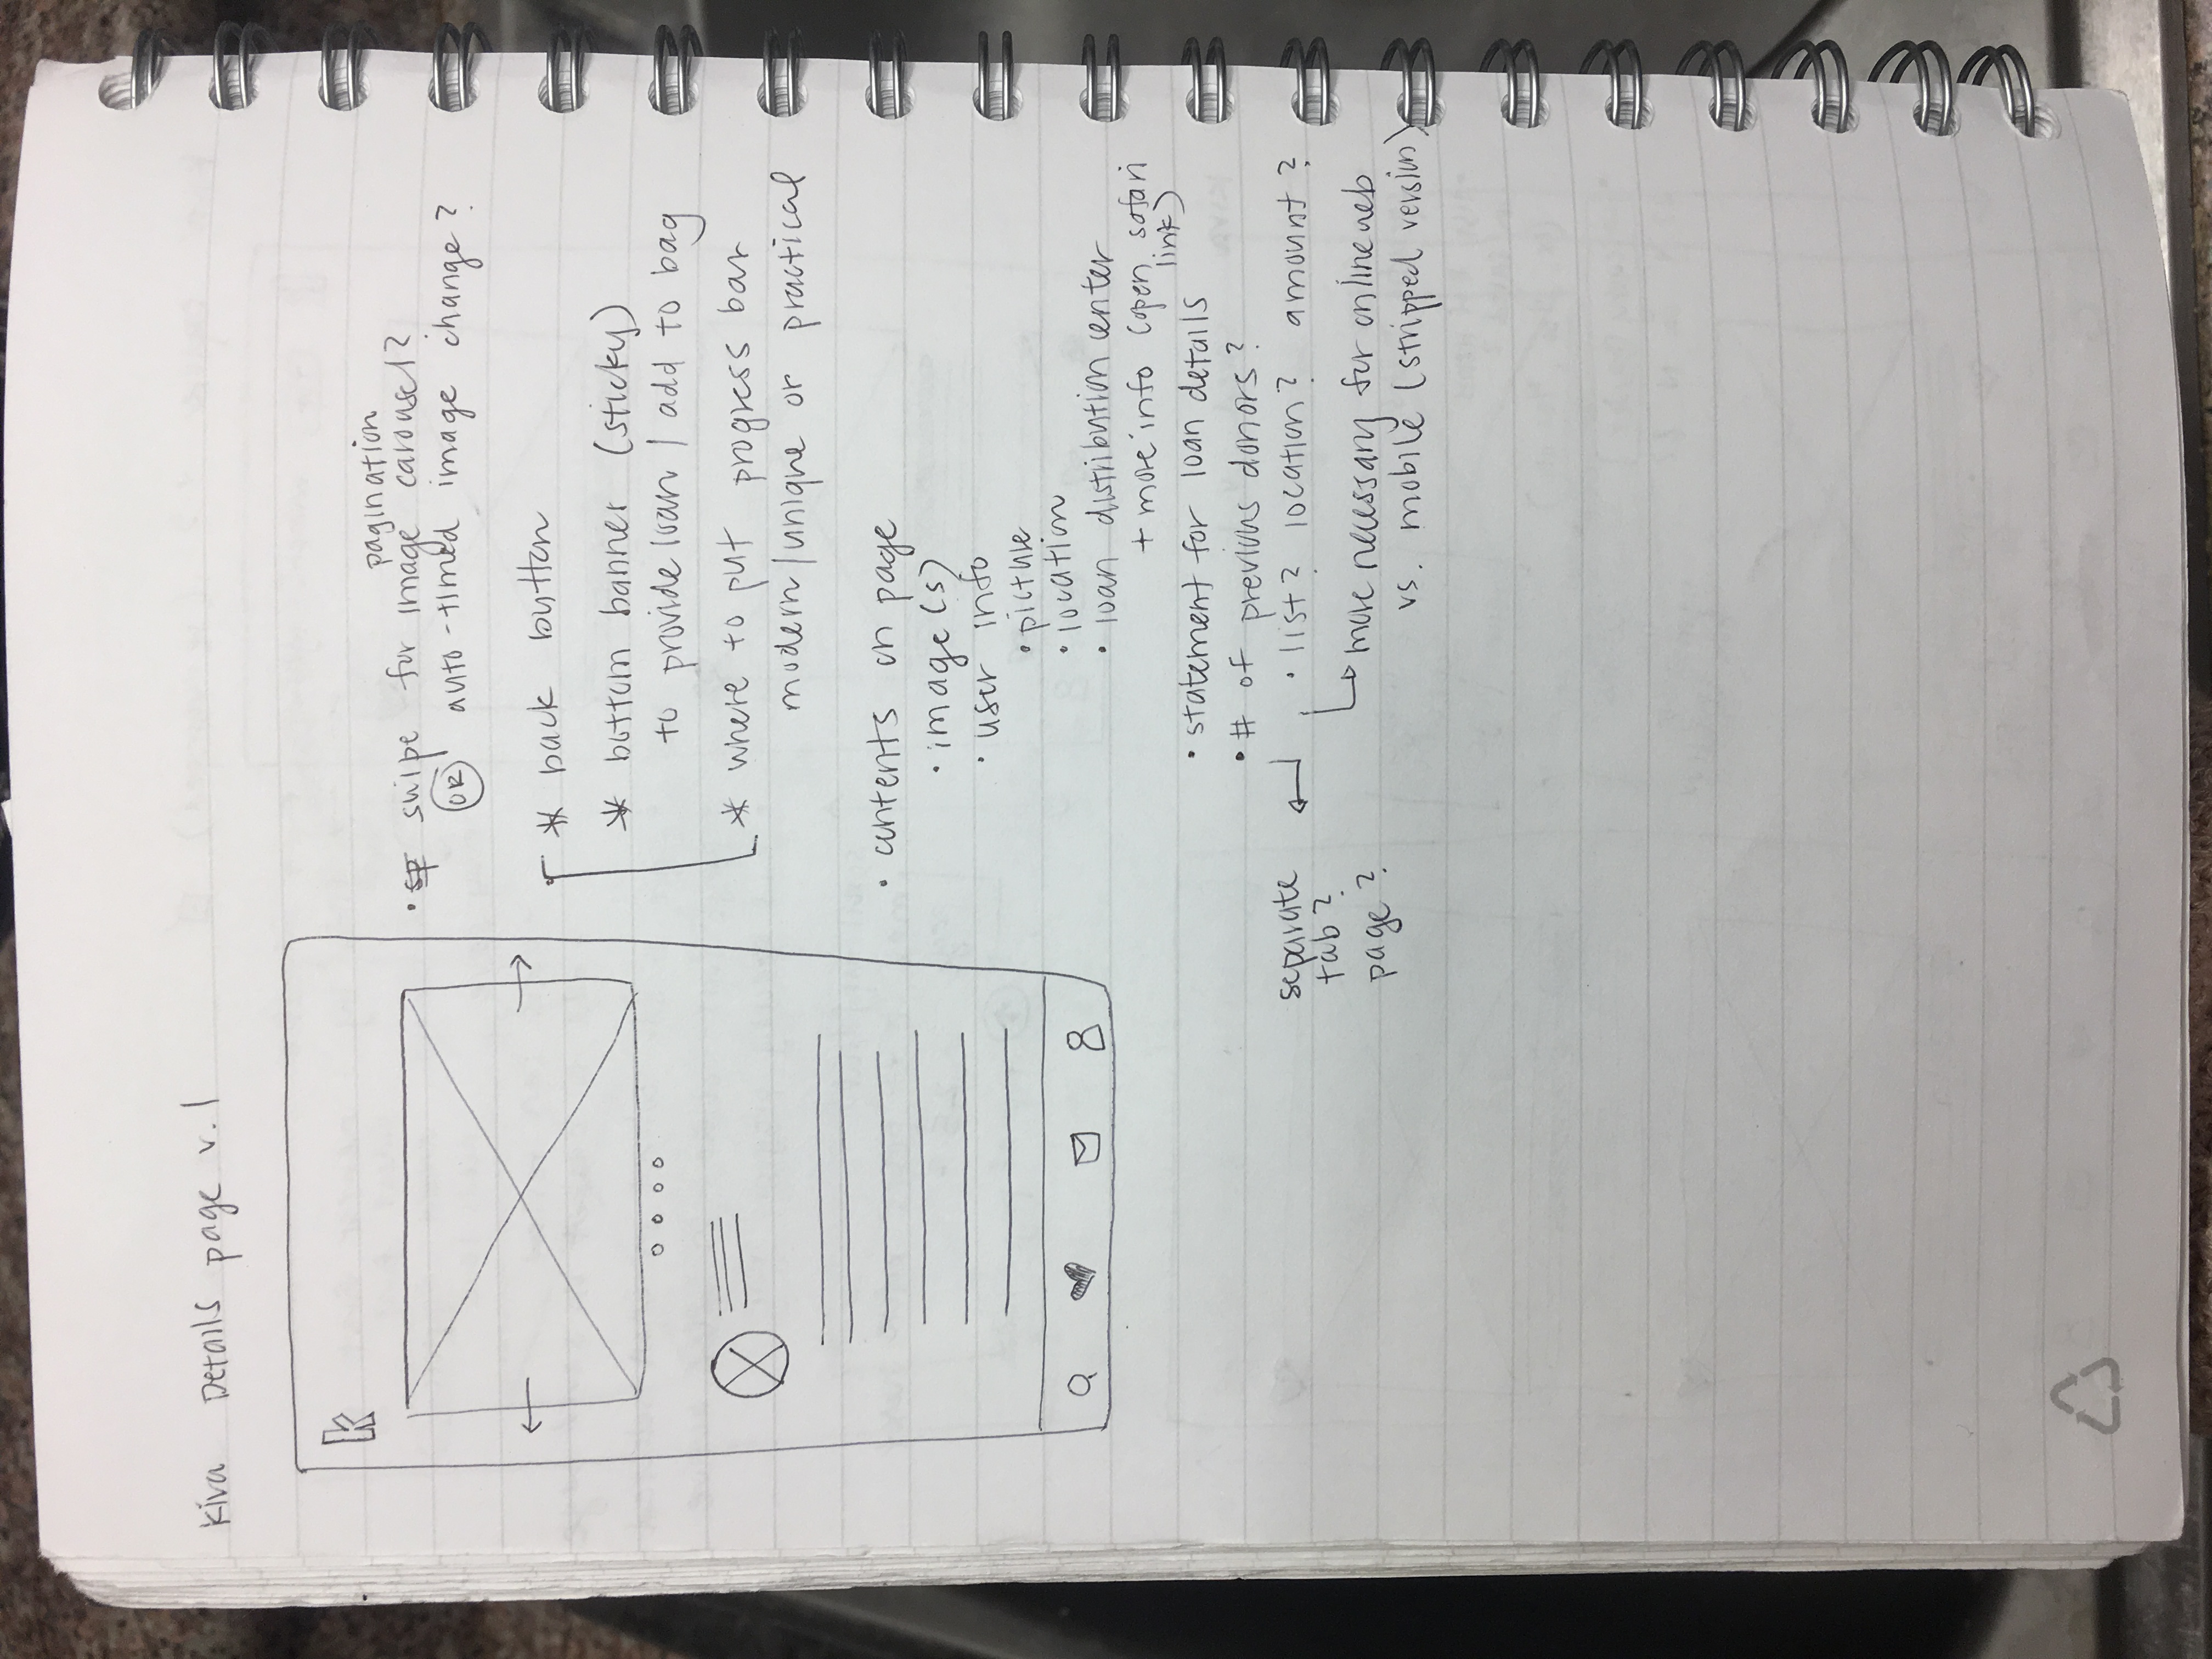 Kiva Details page v.1
k
pagination
• swipe for image carousel?
OR auto-timed image change?
* back button
* bottom banner (sticky)
to provide loan / add to bag
* where to put progress bar
modern/unique or practical
• contents on page
• image(s)
• user info
• picture
• location
• loan distribution center
+ more info (open safari
link)
• statement for loan details
• # of previous donors?
• list? location? amount?
separate
tab?
page?
more necessary for online web
vs. mobile (stripped version)